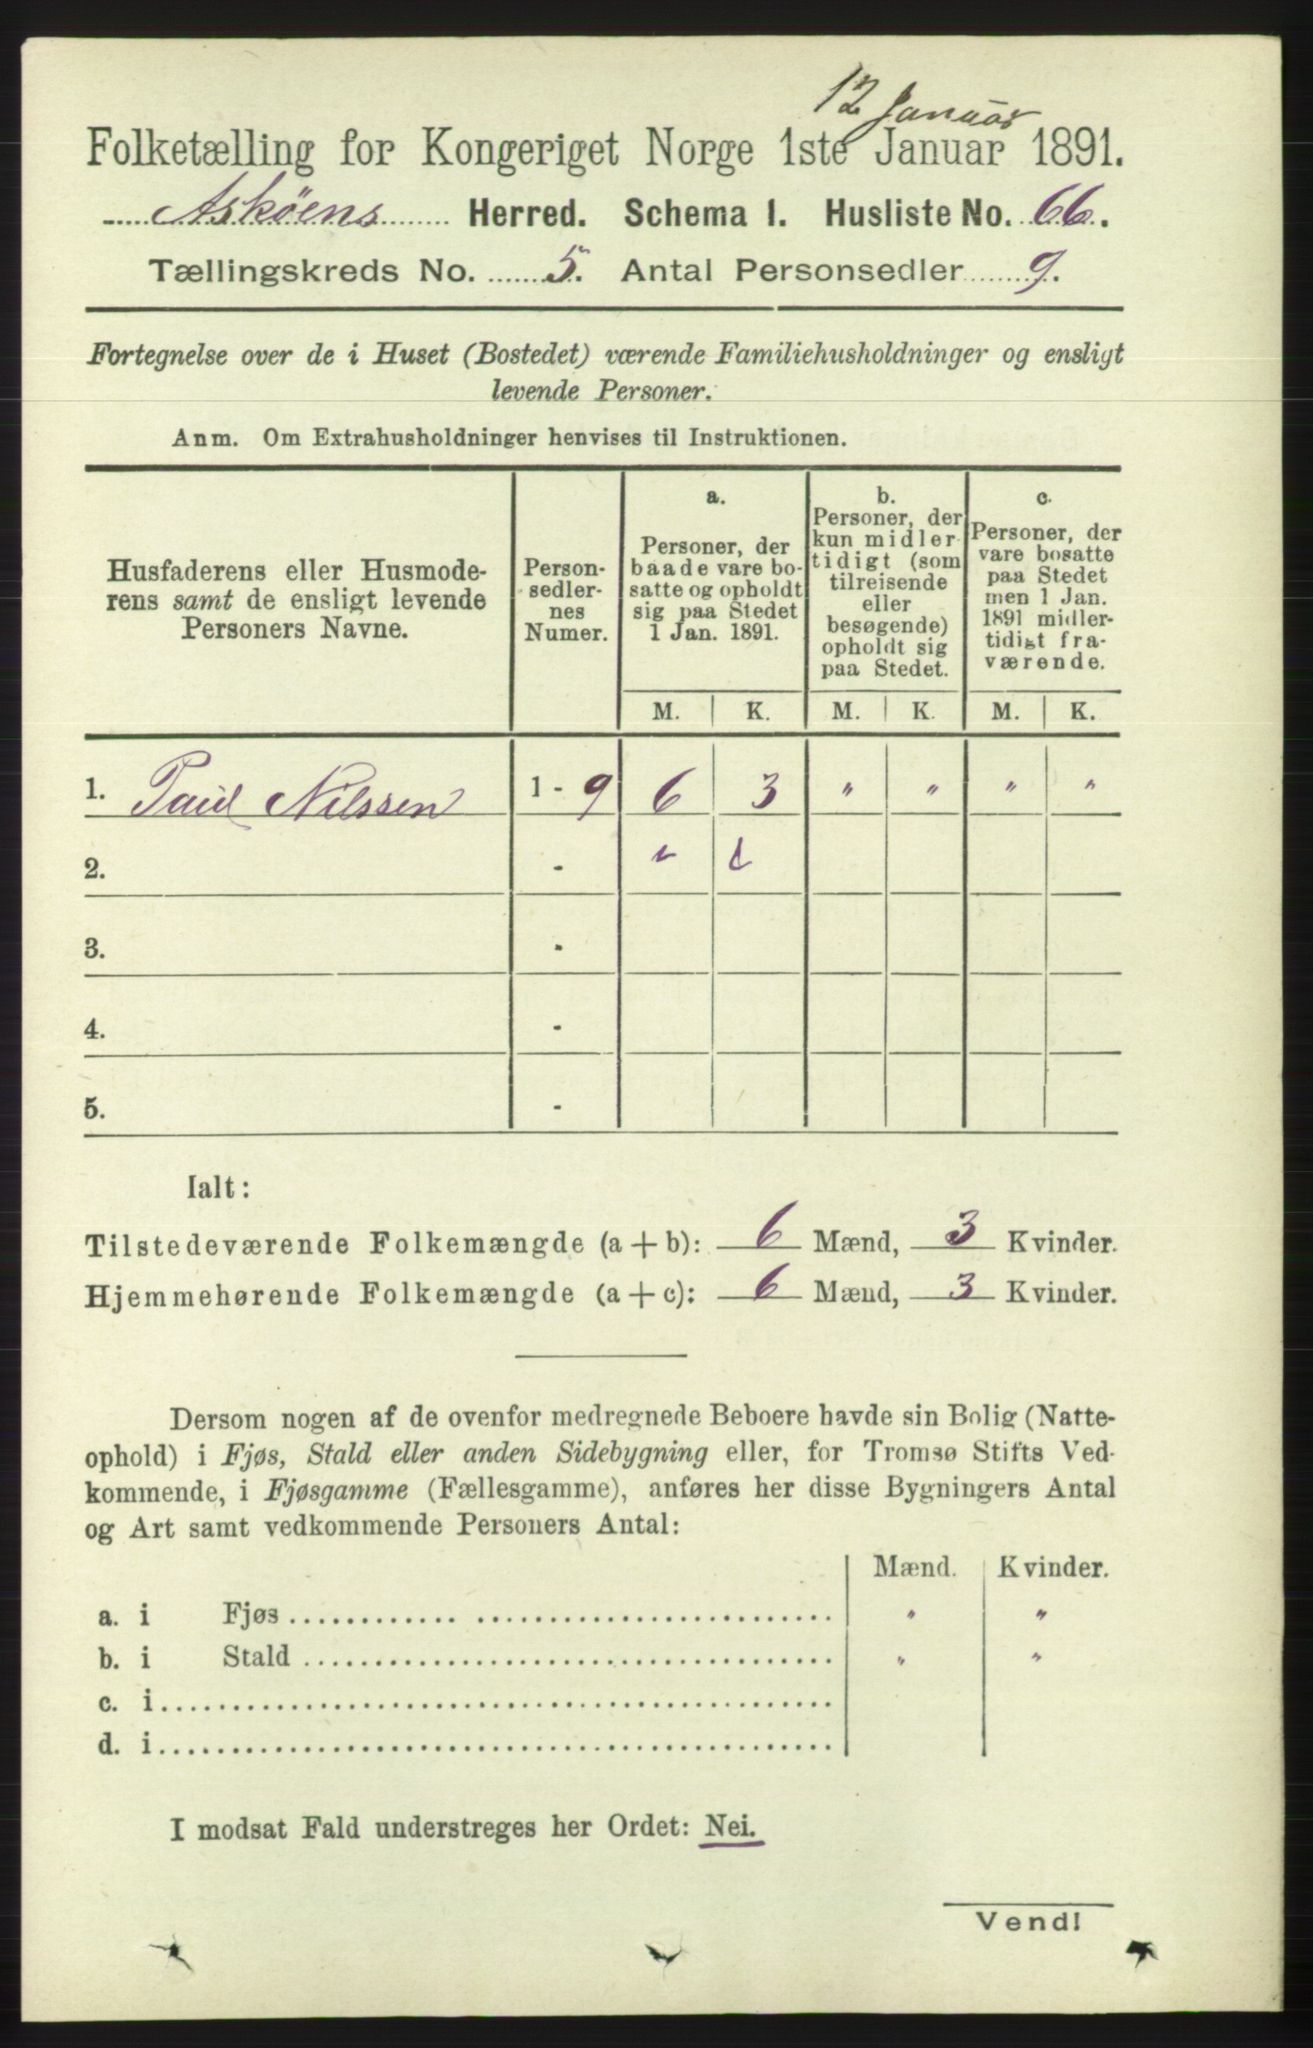 12 Januar
Folketælling for Kongeriget Norge 1ste Januar 1891.
Askøens Herred. Schema 1. Husliste No. 66.
Tællingskreds No. 5. Antal Personsedler 9.
Fortegnelse over de i Huset (Bostedet) værende Familiehusholdninger og ensligt
levende Personer.
Anm. Om Extrahusholdninger henvises til Instruktionen.
Husfaderens eller Husmode-
rens samt de ensligt levende
Personers Navne.
Person-
sedler-
nes
Numer.
a.
Personer, der
baade vare bo-
satte og opholdt
sig paa Stedet
1 Jan. 1891.
b.
Personer, der
kun midler-
tidigt (som
tilreisende
eller
besøgende)
opholdt sig
paa Stedet.
c.
Personer, der
vare bosatte
paa Stedet
men 1 Jan.
1891 midler-
tidigt fra-
værende.
M. K. M. K. M. K.
1. Paul Nilssen 1 - 9 6 3 " " " "
2. -
3. -
4. -
5. -
Ialt:
Tilstedeværende Folkemængde (a + b): 6 Mænd, 3 Kvinder.
Hjemmehørende Folkemængde (a + c): 6 Mænd, 3 Kvinder.
Dersom nogen af de ovenfor medregnede Beboere havde sin Bolig (Natte-
ophold) i Fjøs, Stald eller anden Sidebygning eller, for Tromsø Stifts Ved-
kommende, i Fjøsgamme (Fællesgamme), anføres her disse Bygningers Antal
og Art samt vedkommende Personers Antal:
Mænd. Kvinder.
a. i Fjøs " "
b. i Stald " "
c. i
d. i
I modsat Fald understreges her Ordet: Nei.
Vend!